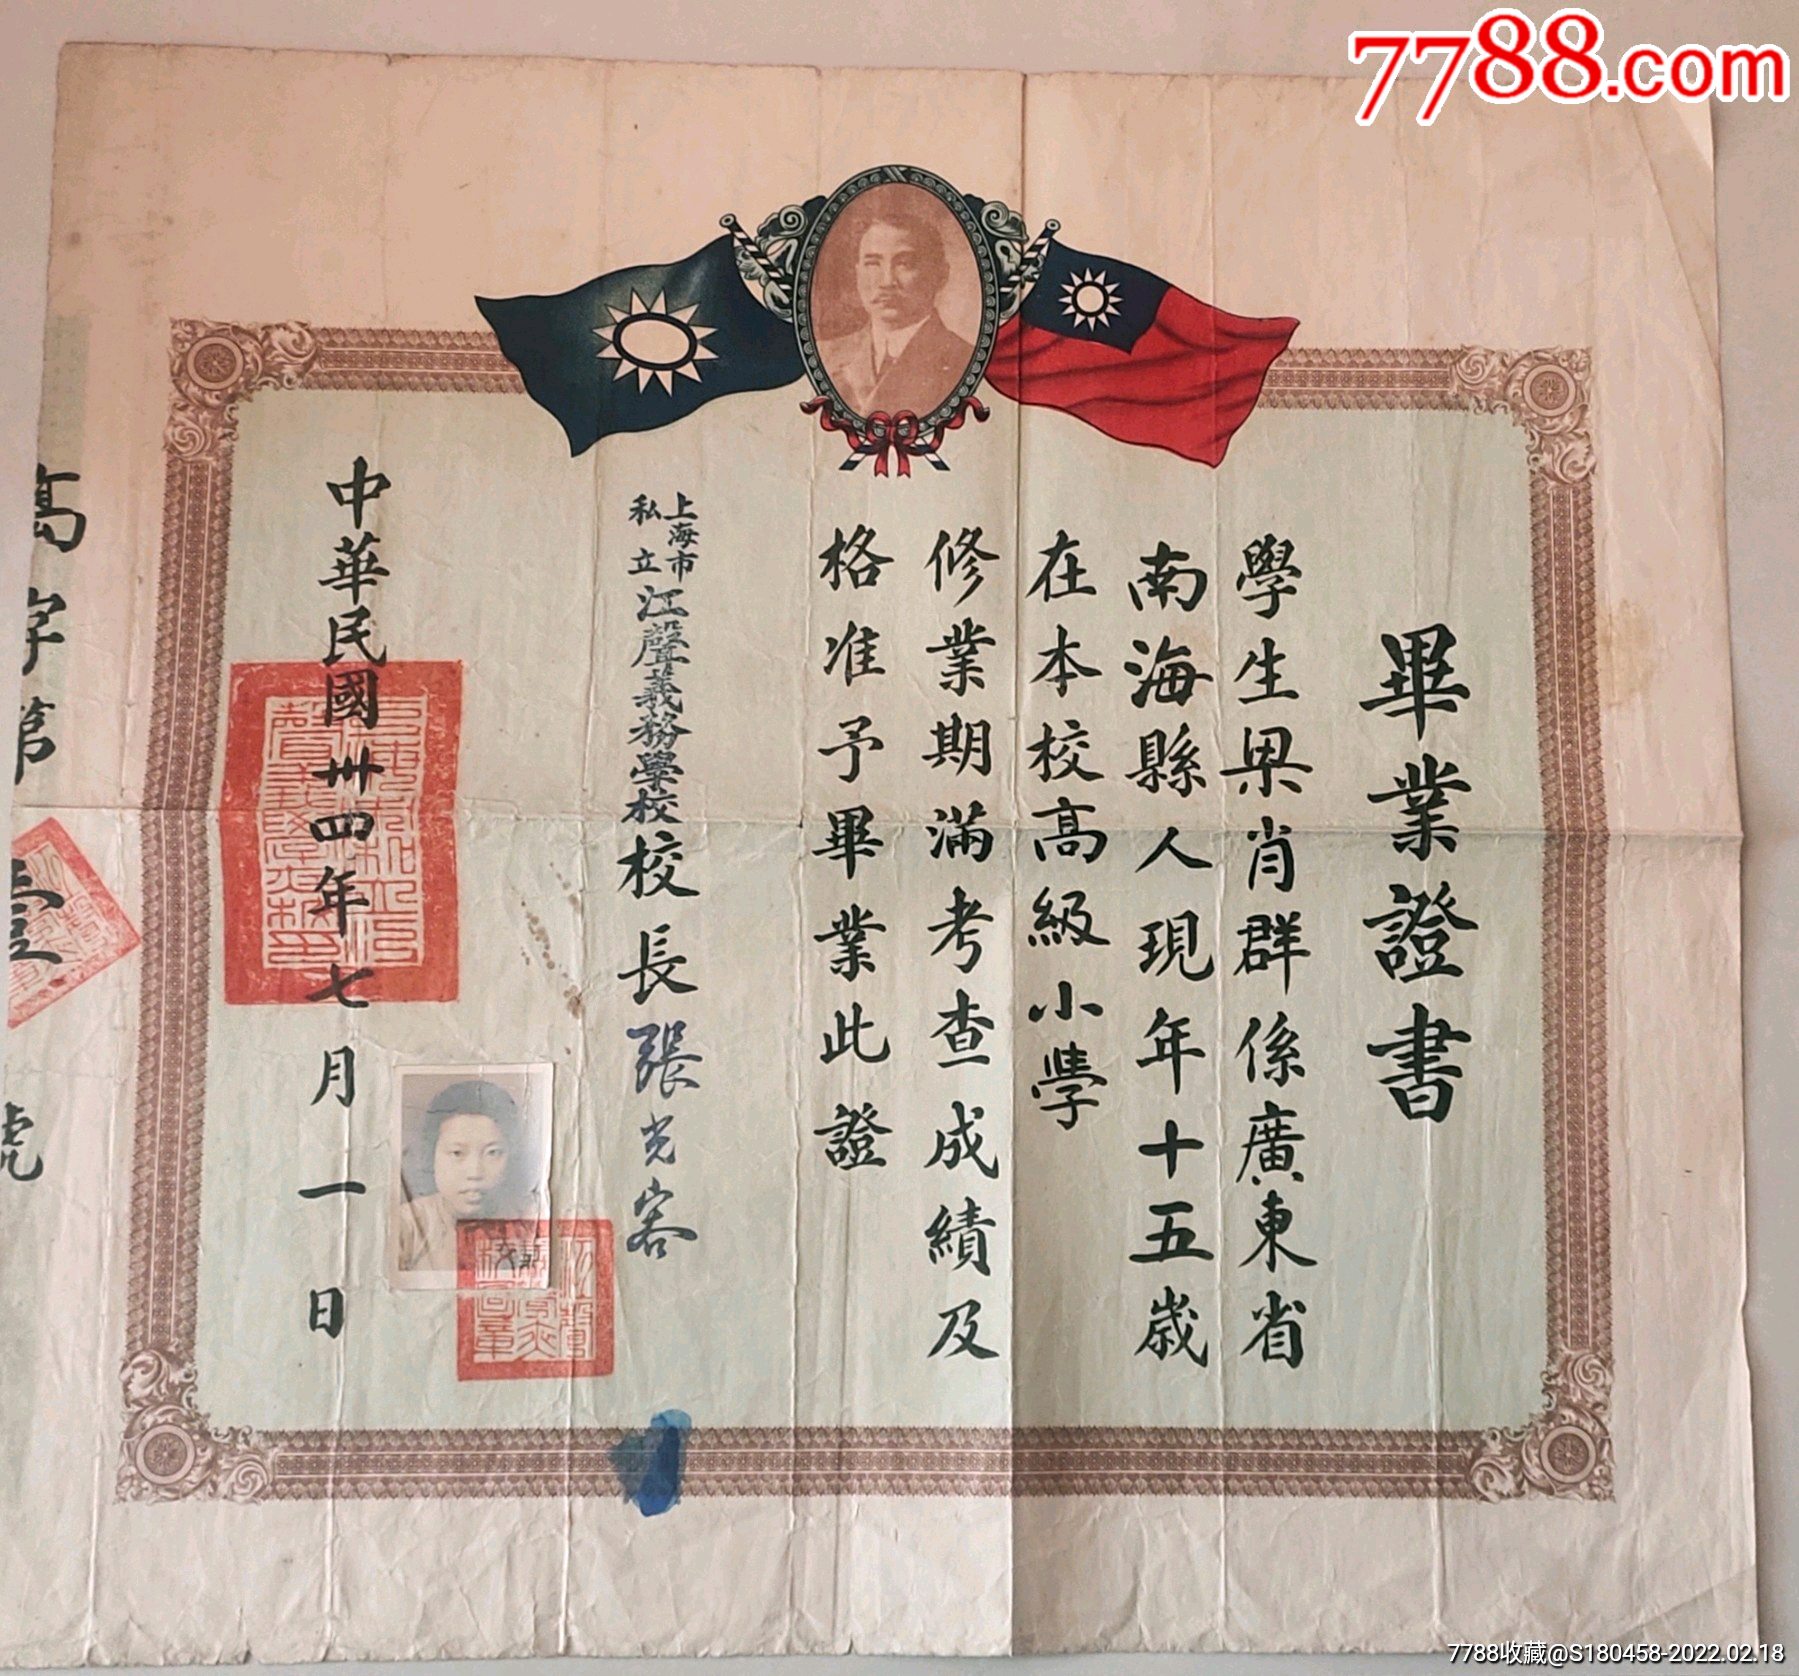 7788.com
畢業證書
學生梁肖群係廣東省
南海縣人現年十五歲
在本校高級小學
修業期滿考查成績及
格准予畢業此證
上海市
私立
江聲義務學校校長張光客
中華民國卅四年七月一日
高字第壹號
7788收藏@S180458-2022.02.18